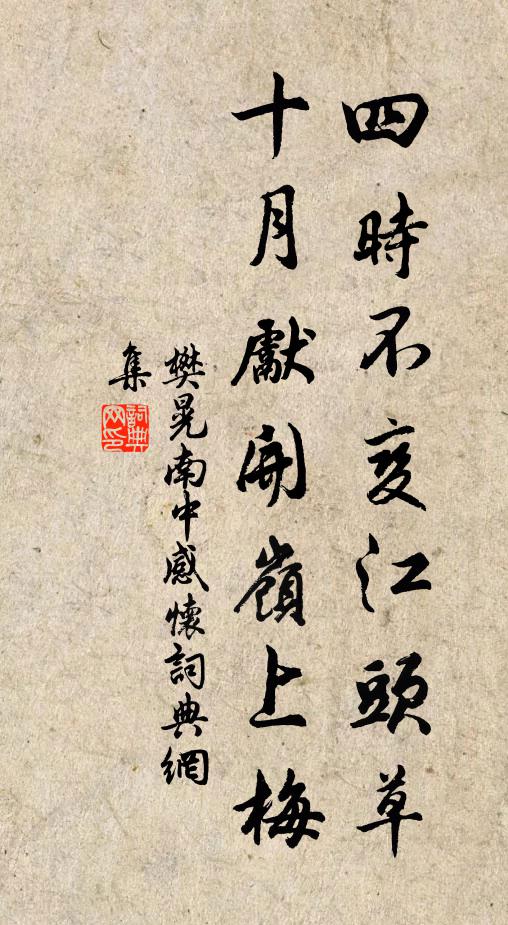 四時不变江頭草
十月獻開嶺上梅
樊晃南中感懷詞典網
集
詞典网印